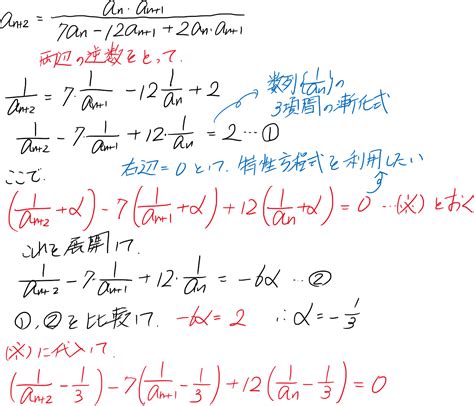 a_{n+2} = \frac{a_n \cdot a_{n+1}}{7a_n - 12a_{n+1} + 2a_n \cdot a_{n+1}}
両辺の逆数をとって.
\frac{1}{a_{n+2}} = 7 \cdot \frac{1}{a_{n+1}} - 12 \cdot \frac{1}{a_n} + 2
数列{\frac{1}{a_n}}の
3項間の漸化式
\frac{1}{a_{n+2}} - 7 \cdot \frac{1}{a_{n+1}} + 12 \cdot \frac{1}{a_n} = 2 … ①
右辺=0として, 特性方程式を利用したい
ここで
(\frac{1}{a_{n+2}} + α) - 7(\frac{1}{a_{n+1}} + α) + 12(\frac{1}{a_n} + α) = 0 …(※) とおく
これを展開して.
\frac{1}{a_{n+2}} - 7 \cdot \frac{1}{a_{n+1}} + 12 \cdot \frac{1}{a_n} = -6α … ②
①, ②を比較して. -6α = 2 ∴ α = -\frac{1}{3}
(※)に代入して.
(\frac{1}{a_{n+2}} - \frac{1}{3}) - 7(\frac{1}{a_{n+1}} - \frac{1}{3}) + 12(\frac{1}{a_n} - \frac{1}{3}) = 0